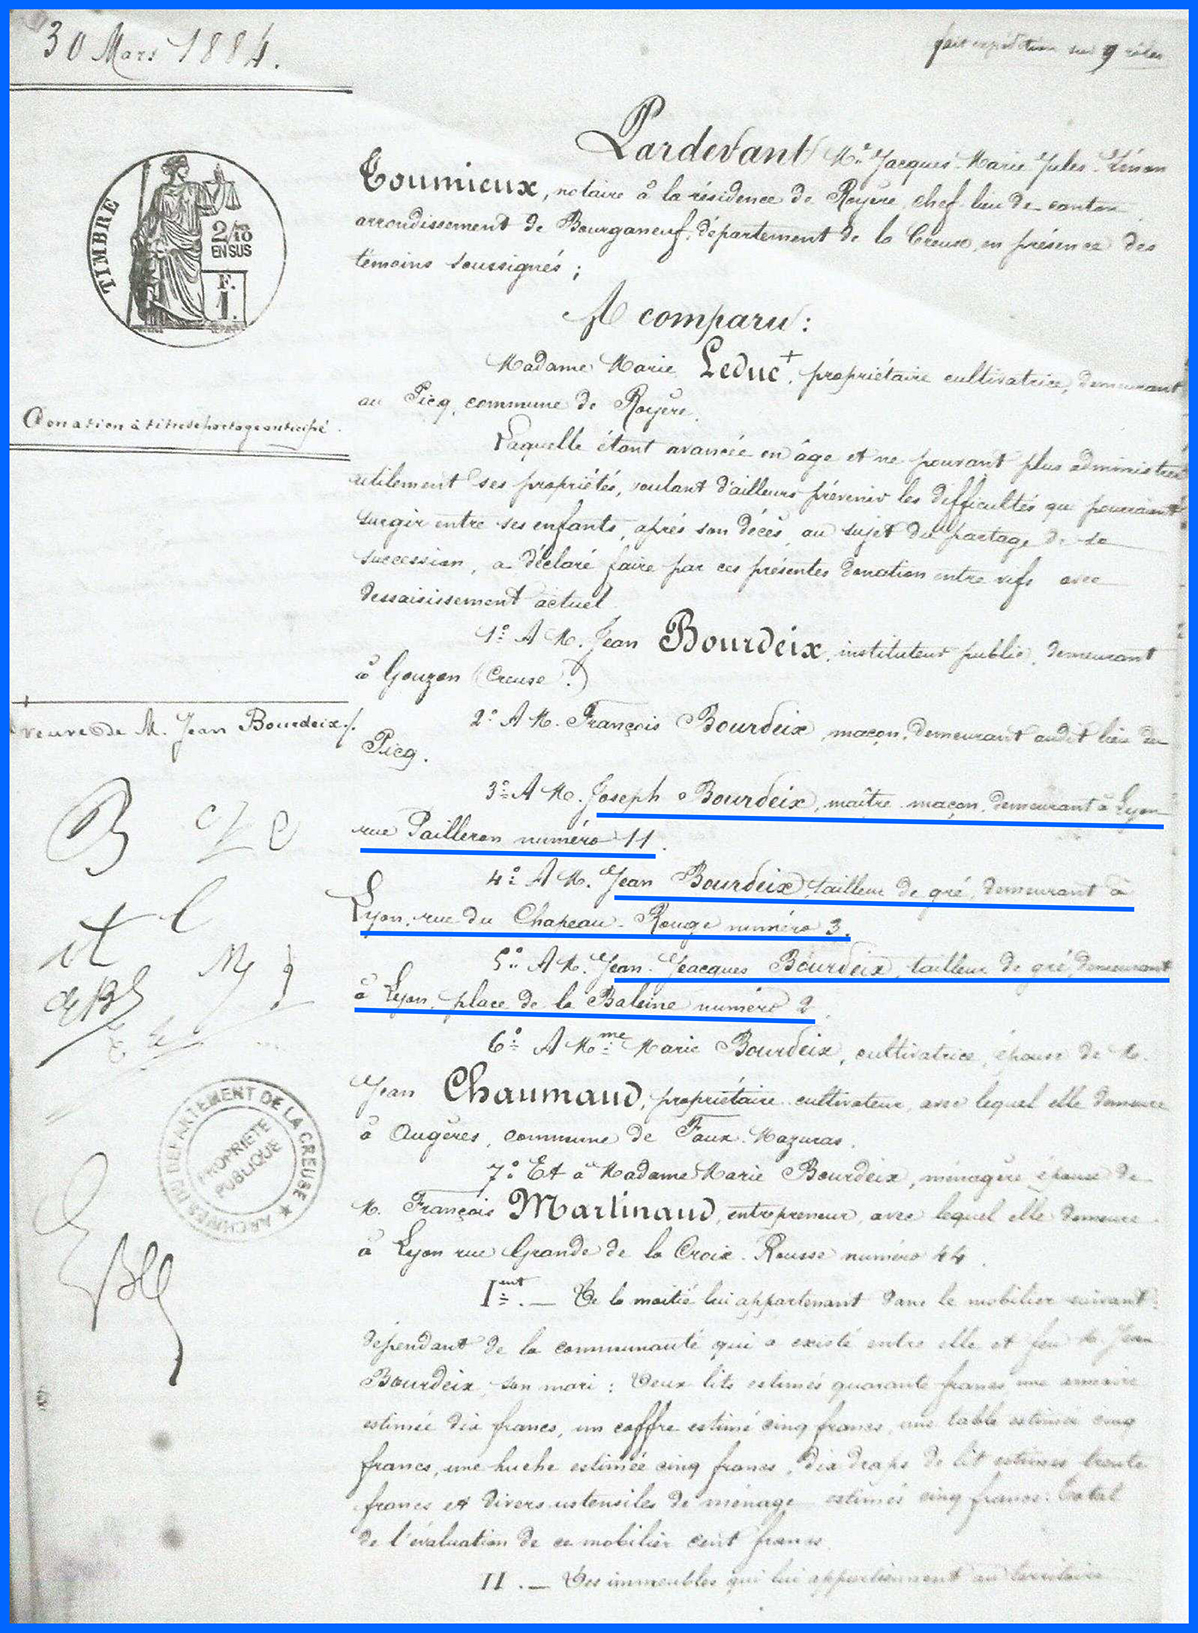 30 Mars 1884.
fait expédition sur 9 rôles
Pardevant Me Jacques-Marie Jules Zénon
Toumieux, notaire à la résidence de Royère, chef-lieu de canton,
arrondissement de Bourganeuf, département de la Creuse, en présence des
témoins soussignés ;
TIMBRE
2/10
EN SUS
F.
1.
A comparu :
Madame Marie Leduc +, propriétaire cultivatrice, demeurant
au Picq, commune de Royère.
Donation à titre de partage anticipé.
Laquelle étant avancée en âge et ne pouvant plus administrer
utilement ses propriétés, voulant d'ailleurs prévenir les difficultés qui pourraient
surgir entre ses enfants, après son décès, au sujet du partage de sa
succession, a déclaré faire par ces présentes donation entre vifs avec
dessaisissement actuel
1° A M. Jean Bourdeix, instituteur public, demeurant
à Gouzon (Creuse.)
+ veuve de M. Jean Bourdeix /.
2° A M. François Bourdeix, maçon, demeurant audit lieu du
Picq.
3° A M. Joseph Bourdeix, maître-maçon, demeurant à Lyon
rue Pailleron numéro 11.
4° A M. Jean Bourdeix, tailleur de gré, demeurant à
Lyon, rue du Chapeau-Rouge numéro 3.
5° A M. Jean-Jeacques Bourdeix, tailleur de gré, demeurant
à Lyon, place de la Baleine numéro 2.
6° A Mme Marie Bourdeix, cultivatrice, épouse de M.
Jean Chaumaud, propriétaire-cultivateur, avec lequel elle demeure
à Augères, commune de Faux-Mazuras.
ARCHIVES DU DEPARTEMENT DE LA CREUSE
PROPRIÉTÉ
PUBLIQUE
7° Et à Madame Marie Bourdeix, ménagère, épouse de
M. François Martinaud, entrepreneur, avec lequel elle demeure
à Lyon rue Grande de la Croix-Rousse numéro 44.
Ient. — De la moitié lui appartenant dans le mobilier suivant :
dépendant de la communauté qui a existé entre elle et feu M. Jean
Bourdeix, son mari : Deux lits estimés quarante francs, une armoire
estimée dix francs, un coffre estimé cinq francs, une table estimée cinq
francs, une huche estimée cinq francs, dix draps de lit estimés trente
francs et divers ustensiles de ménage estimés cinq francs. Total
de l'évaluation de ce mobilier cent francs.
II. — Des immeubles qui lui appartiennent au territoire